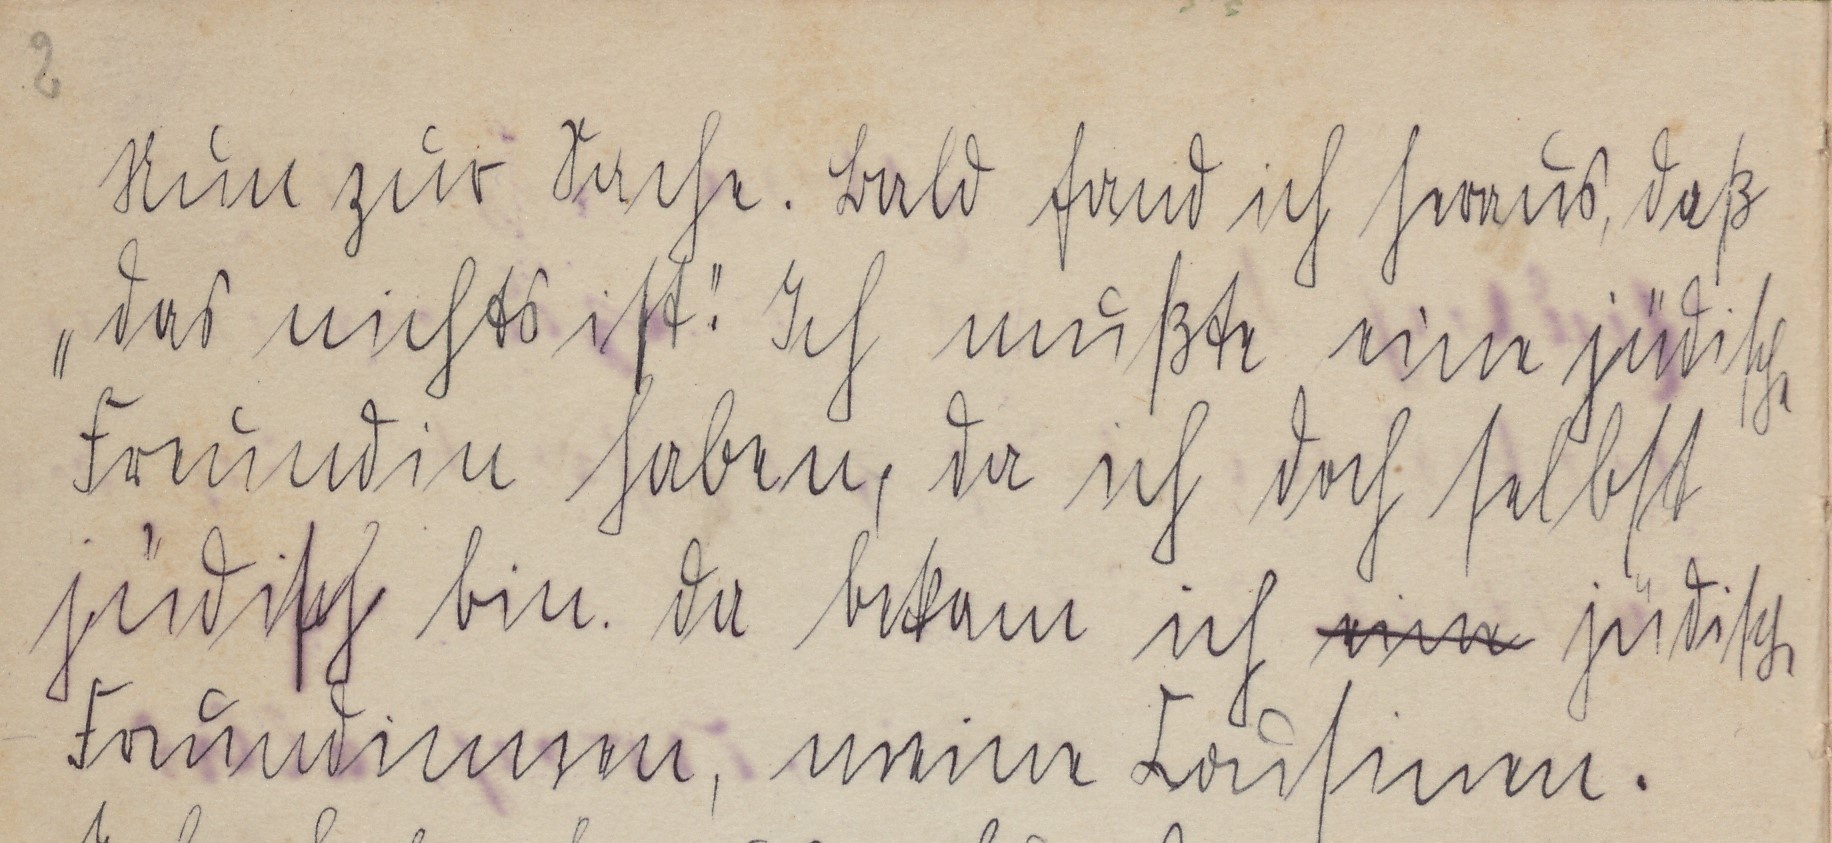 2
Nun zur Sache. Bald fand ich heraus, daß
„das nichts ist“. Ich mußte eine jüdische
Freundin haben, da ich doch selbst
jüdisch bin. Da bekam ich eine jüdische
Freundinnen, meine Cousinen.